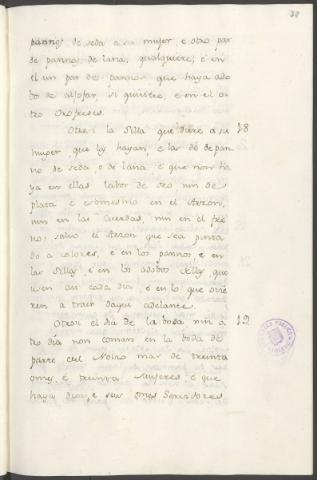 30
pannos de seda a su muger, e otro par
de pannos de lana, qualquiere, e en
el un par de pannos que haya ado
bo de allofar, si quisiere, e en el o
tro Orofreses.
Otrosi la Silla que diere a su §.8
muger que los hayan, e las dé de pan
no de seda, o de lana, e que non ha
ya en ellas labor de oro nin de
plata e esomesmo en el Arzon,
nin en las Cuerdas, nin en el fre
no, salvo el Arzon que sea pinta
do a colores, e en los pannos e en
las Sillas, e en los adobos dellas, que
usen asi cada dia, e en lo que ovie
ren a traer daqui adelante.
Otrosi el dia de la boda nin o §.9
tro dia non coman en la boda de
parte del Novio mas de treinta
omes, e treinta Mugeres, e que
haya diez, e seis omes Servidores